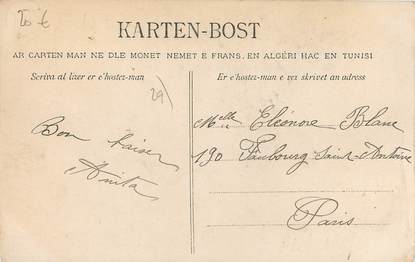 10 €
KARTEN-BOST
AR CARTEN MAN NE DLE MONET NEMET E FRANS, EN ALGÉRI HAC EN TUNISI
Scriva al lizer er c'hostez-man
Er c'hostez-man e vez skrivet an adress
29)
Bon baiser
Anita
Melle Eléonore Blanc
190 Faubourg Saint-Antoine
Paris